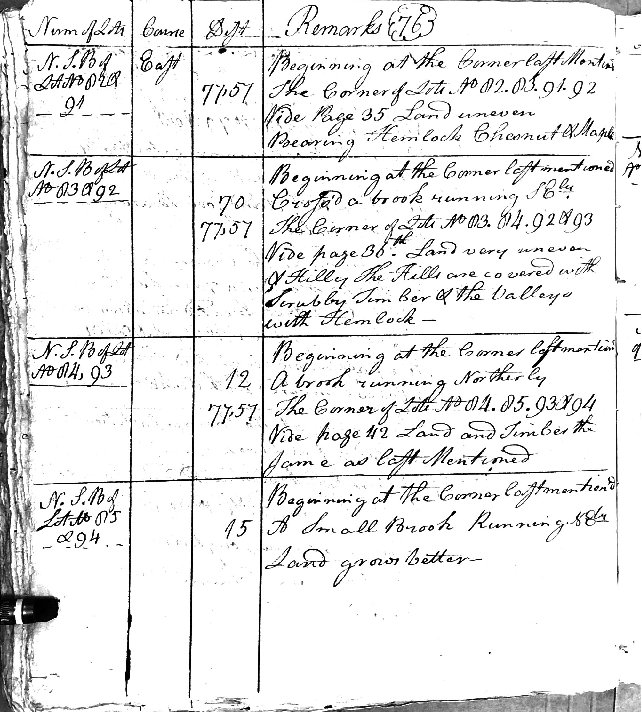 Num of Lots Course Dist Remarks (76)
N. S. B of East Beginning at the Corner last Mention
Lot No 82 & 77,57 The Corner of Lots No 82. 83. 91. 92
91 Vide Page 35 Land uneven
Bearing Hemlock Chesnut & Maple
N. S. B of Lot Beginning at the Corner last mentioned
No 83 & 92 70 Crossd a brook running SEly
77,57 The Corner of Lots No 83. 84. 92 & 93
Vide page 36th Land very uneven
& Hilly The Hills are covered with
Scrubby Timber & the Valleys
with Hemlock —
N. S. B of Lot Beginning at the Corner last mention
No 84, 93 12 A brook running Northerly
77,57 The Corner of Lots No 84. 85. 93 & 94
Vide page 42 Land and Timber the
same as last Mentioned
N. S. B of Beginning at the Corner last mentiond
Lot No 85 15 A Small Brook Running
& 94
Land grows better —